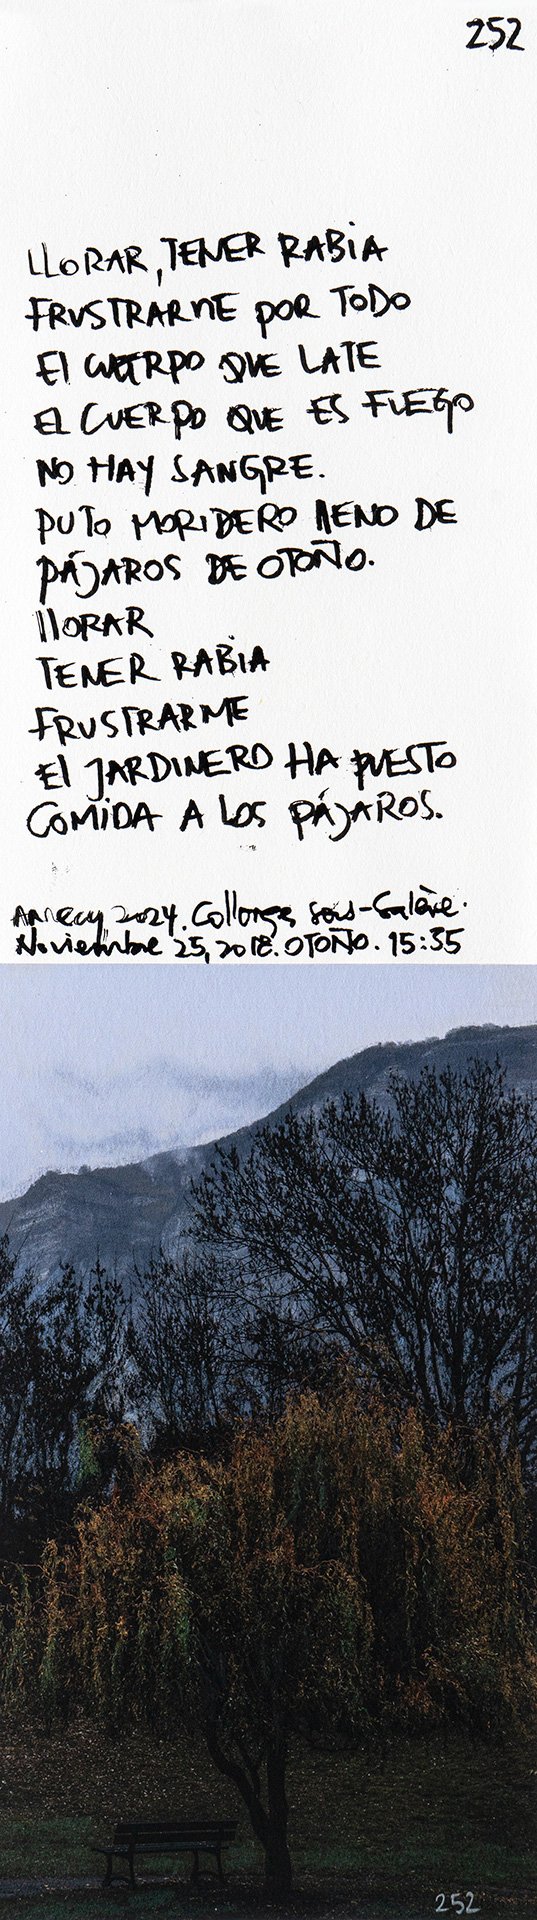 252
LLORAR, TENER RABIA
FRUSTRARME POR TODO
El CUERPO QUE LATE
EL CUERPO QUE ES FUEGO
NO HAY SANGRE.
PUTO MORIDERO llENO DE
PÁJAROS DE OTOÑO.
llORAR
TENER RABIA
FRUSTRARME
El JARDINERO HA PUESTO
COMIDA A LOS PÁJAROS.
Annecy 2024. Collonges sous-Salève.
Noviembre 25, 2018. OTOÑO. 15:35
252